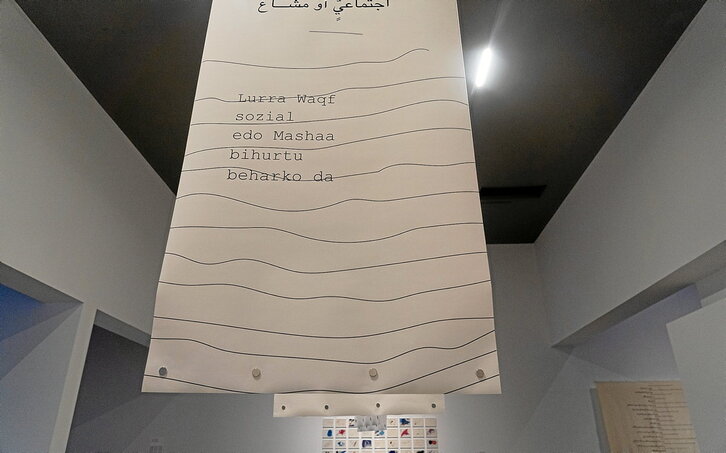 اجتماعيٍّ أو مشــاع
Lurra Waqf
sozial
edo Mashaa
bihurtu
beharko da